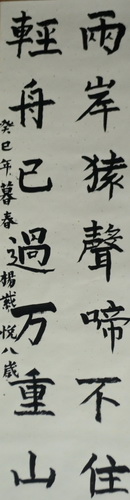 兩岸猿聲啼不住
輕舟已過万重山
癸巳年暮春楊戴悅八歲